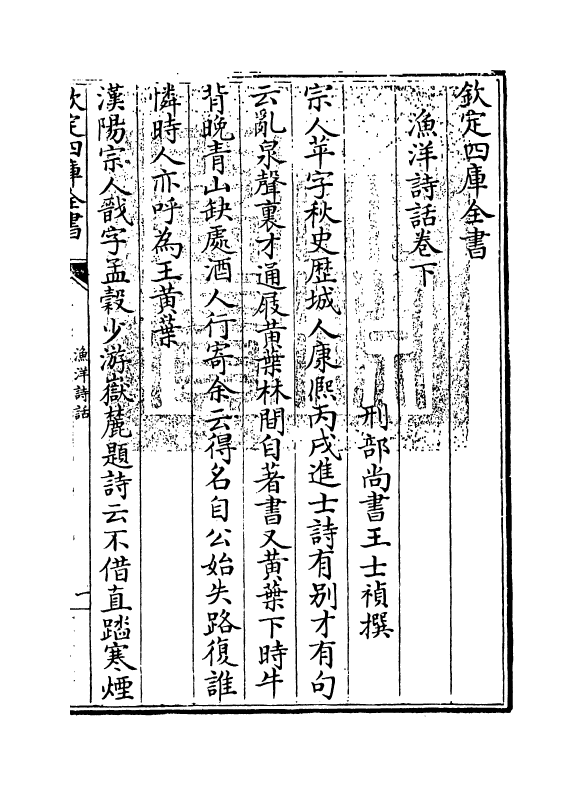 欽定四庫全書
漁洋詩話卷下
刑部尚書王士禎撰
宗人苹字秋史歴城人康熈丙戌進士詩有别才有句
云亂泉聲裏才通屐黄葉林間自著書又黄葉下時牛
背晚青山缺處酒人行寄余云得名自公始失路復誰
憐時人亦呼為王黄葉
漢陽宗人戩字孟穀少游嶽麓題詩云不借直踏寒煙
欽定四庫全書
漁洋詩話
一